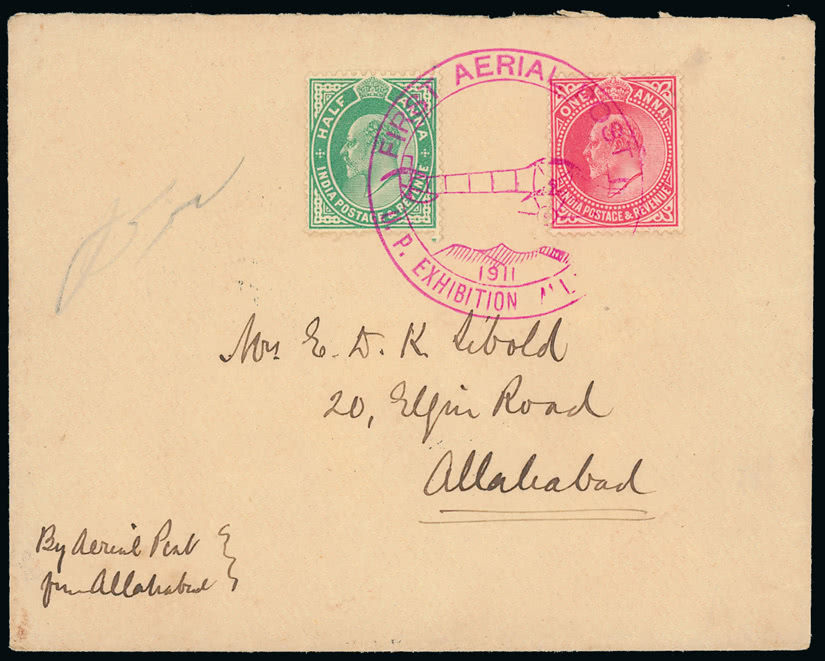 HALF ANNA
INDIA POSTAGE & REVENUE
FIRST AERIAL POST
U. P. EXHIBITION ALL
1911
ONE ANNA
INDIA POSTAGE & REVENUE
Mrs E. D. K. Sibold
20, Elgin Road
Allahabad
By Aerial Post
from Allahabad